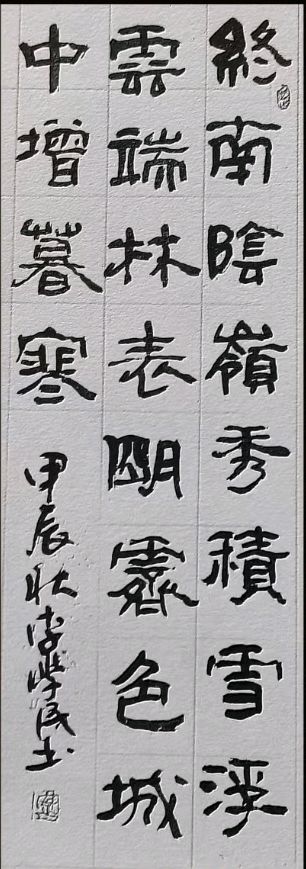 終南陰嶺秀積雪浮
雲端林表朙霽色城
中增暮寒
甲辰秋李學民书